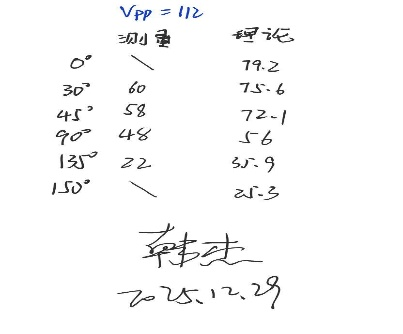 Vpp = 112
测量 理论
0° \ 79.2
30° 60 75.6
45° 58 72.1
90° 48 56
135° 22 35.9
150° \ 25.3
韩杰
2025.12.29